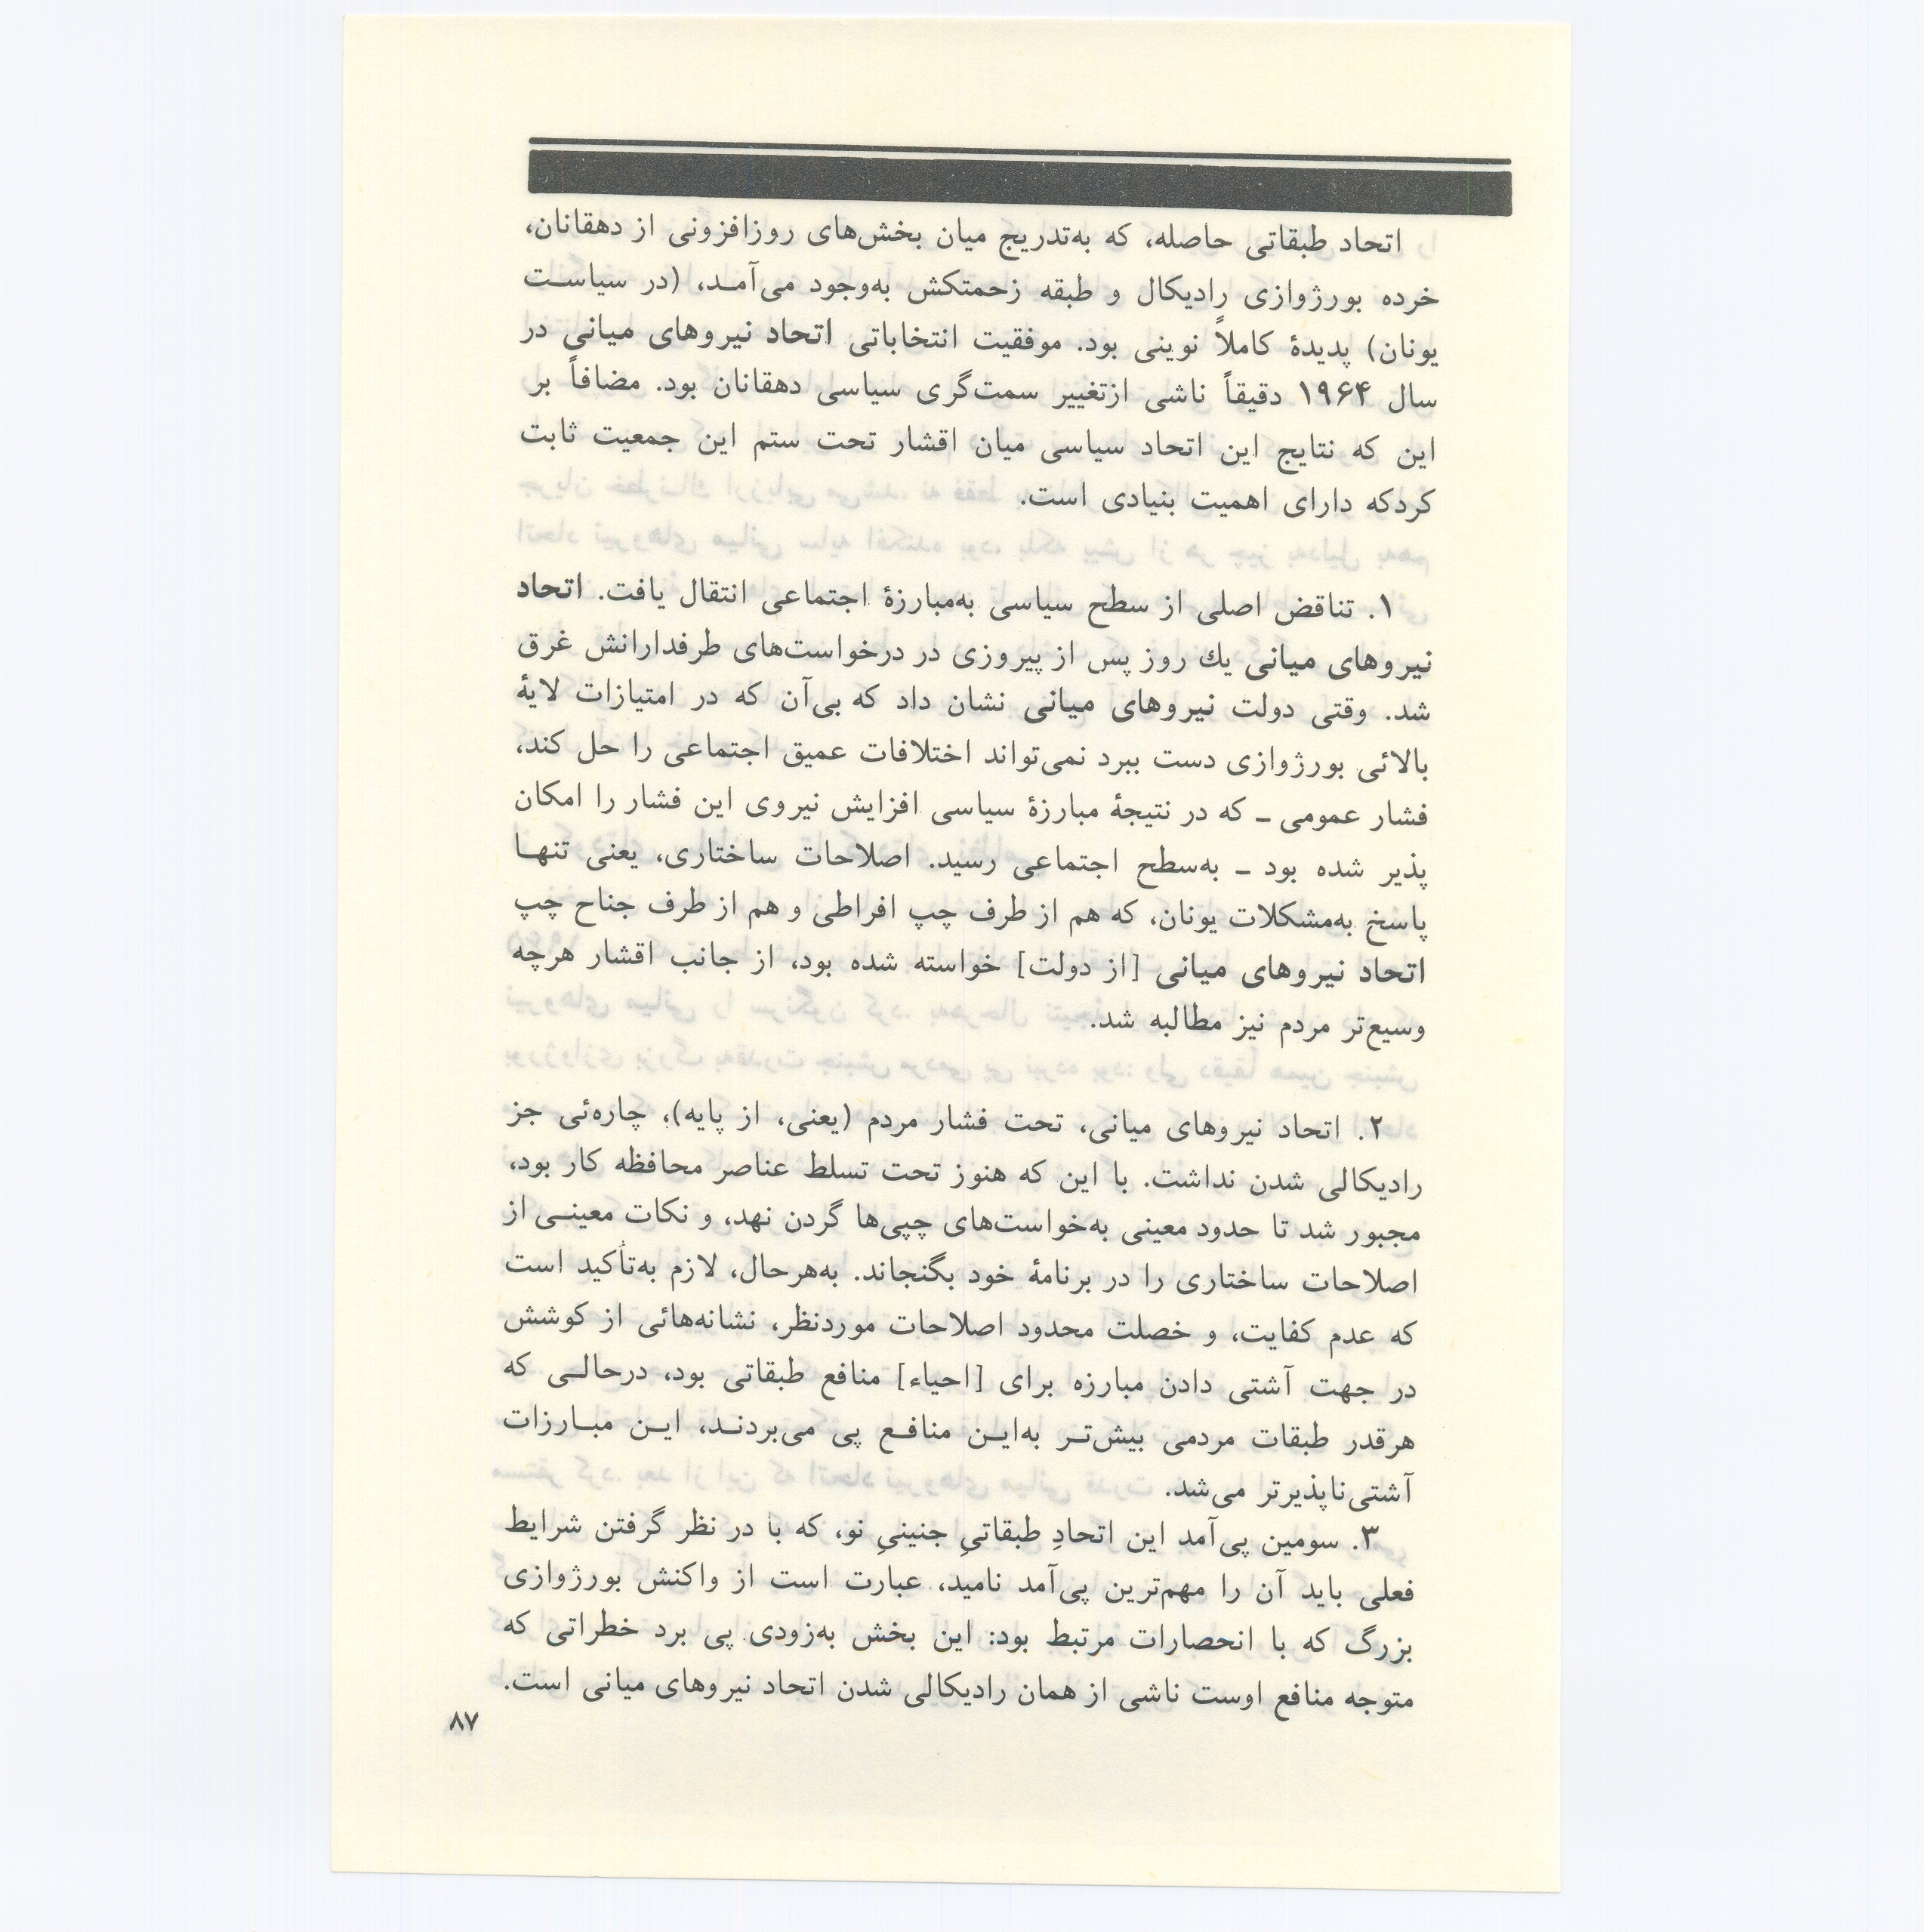 اتحاد طبقاتی حاصله، که به‌تدریج میان بخش‌های روزافزونی از دهقانان،
خرده بورژوازی رادیکال و طبقه زحمتکش به‌وجود می‌آمـد، (در سیاسـت
یونان) پدیدهٔ کاملاً نوینی بود. موفقیت انتخاباتی اتحاد نیروهای میانی در
سال ۱۹۶۴ دقیقاً ناشی ازتغییر سمت‌گری سیاسی دهقانان بود. مضافاً بر
این که نتایج این اتحاد سیاسی میان اقشار تحت ستم این جمعیت ثابت
کردکه دارای اهمیت بنیادی است.
۱. تناقض اصلی از سطح سیاسی به‌مبارزهٔ اجتماعی انتقال یافت. اتحاد
نیروهای میانی یك روز پس از پیروزی در درخواست‌های طرفدارانش غرق
شد. وقتی دولت نیروهای میانی نشان داد که بی‌آن که در امتیازات لایهٔ
بالائی بورژوازی دست ببرد نمی‌تواند اختلافات عمیق اجتماعی را حل کند،
فشار عمومی ـ که در نتیجهٔ مبارزهٔ سیاسی افزایش نیروی این فشار را امکان
پذیر شده بود ـ به‌سطح اجتماعی رسید. اصلاحات ساختاری، یعنی تنهـا
پاسخ به‌مشکلات یونان، که هم از طرف چپ افراطی و هم از طرف جناح چپ
اتحاد نیروهای میانی [از دولت] خواسته شده بود، از جانب اقشار هرچه
وسیع‌تر مردم نیز مطالبه شد.
۲. اتحاد نیروهای میانی، تحت فشار مردم (یعنی، از پایه)، چاره‌ئی جز
رادیکالی شدن نداشت. با این که هنوز تحت تسلط عناصر محافظه کار بود،
مجبور شد تا حدود معینی به‌خواست‌های چپی‌ها گردن نهد، و نکات معینـی از
اصلاحات ساختاری را در برنامهٔ خود بگنجاند. به‌هرحال، لازم به‌تأکید است
که عدم کفایت، و خصلت محدود اصلاحات موردنظر، نشانه‌هائی از کوشش
در جهت آشتی دادن مبارزه برای [احیاء] منافع طبقاتی بود، درحالـی که
هرقدر طبقات مردمی بیش‌تـر به‌ایـن منافـع پی می‌بردنـد، ایـن مبـارزات
آشتی‌ناپذیرتر می‌شد.
۳. سومین پی‌آمد این اتحادِ طبقاتیِ جنینیِ نو، که با در نظر گرفتن شرایط
فعلی باید آن را مهم‌ترین پی‌آمد نامید، عبارت است از واکنش بورژوازی
بزرگ که با انحصارات مرتبط بود: این بخش به‌زودی پی برد خطراتی که
متوجه منافع اوست ناشی از همان رادیکالی شدن اتحاد نیروهای میانی است.
۸۷